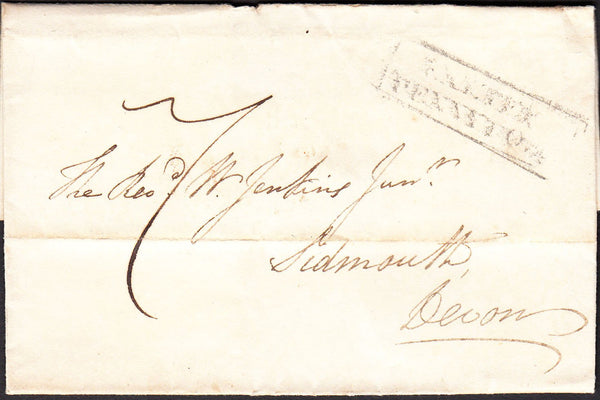 EXETER
PENNY POST
7
The Rev.d W. Jenkins Jun.r
Sidmouth,
Devon